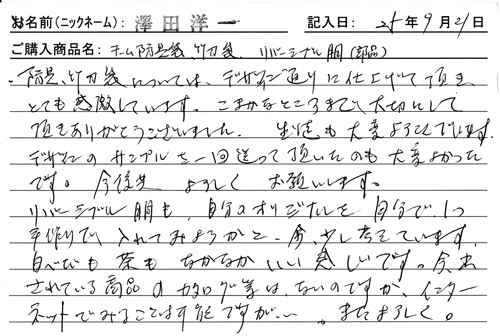 お名前(ニックネーム): 澤田洋一 記入日: 25年9月21日
ご購入商品名: チーム防具袋、竹刀袋、リバーシブル胴(部品)
・防具、竹刀袋については、デザイン通りに仕上げて頂き、
とても感激しています。こまかなところまで、大切にして
頂きありがとうございました。生徒も大変よろこんでいます。
デザインのサンプルを一回送って頂いたのも大変よかった
です。今後共よろしくお願いします。
リバーシブル胴も、自分のオリジナルを自分で1つ
手作りで入れてみようかと、今、少し考えています。
白べたも茶もなかなかいい感じです。今、出
されている商品のカタログ等は、ないのですか、インター
ネットでみることは可能ですが…。またよろしく。